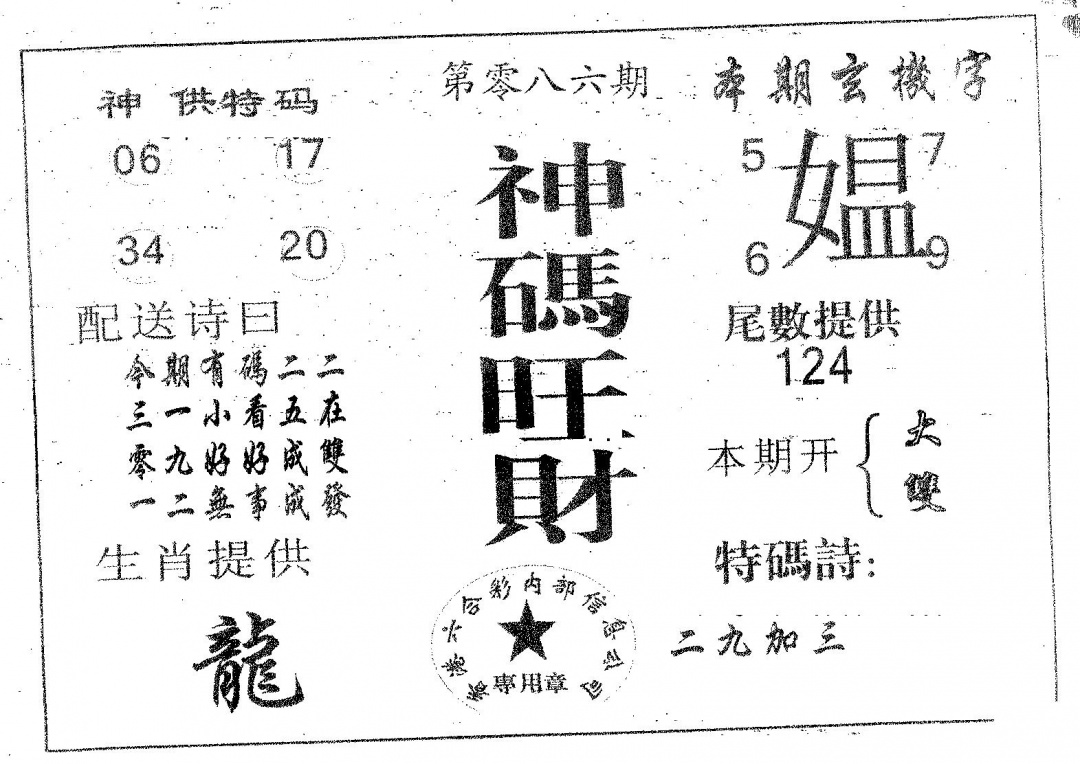 第零八六期
神供特码
06 17
34 20
配送诗曰
今期有碼二二
三一小看五在
零九好好成雙
一二無事成發
生肖提供
龍
神碼旺財
香港六合彩内部信息公司
專用章
本期玄機字
5 7
媪
6 9
尾數提供
124
本期开
大
雙
特碼詩:
二九加三